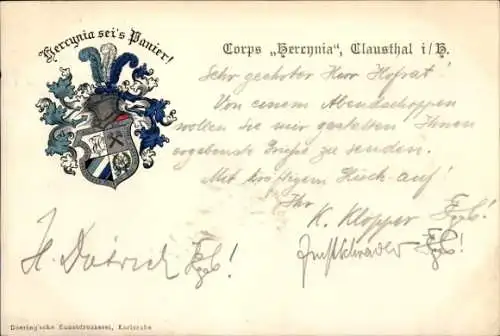 Hercynia sei's Panier!
Corps „Hercynia“, Clausthal i/H.
Sehr geehrter Herr Hofrat!
Von einem Abendschoppen
wollen Sie mir gestatten Ihnen
ergebenste Grüße zu senden.
Mit kräftigem Glück-auf!
Ihr
K. Klopper
H. Dietrich
Doering'sche Kunstdruckerei, Karlsruhe